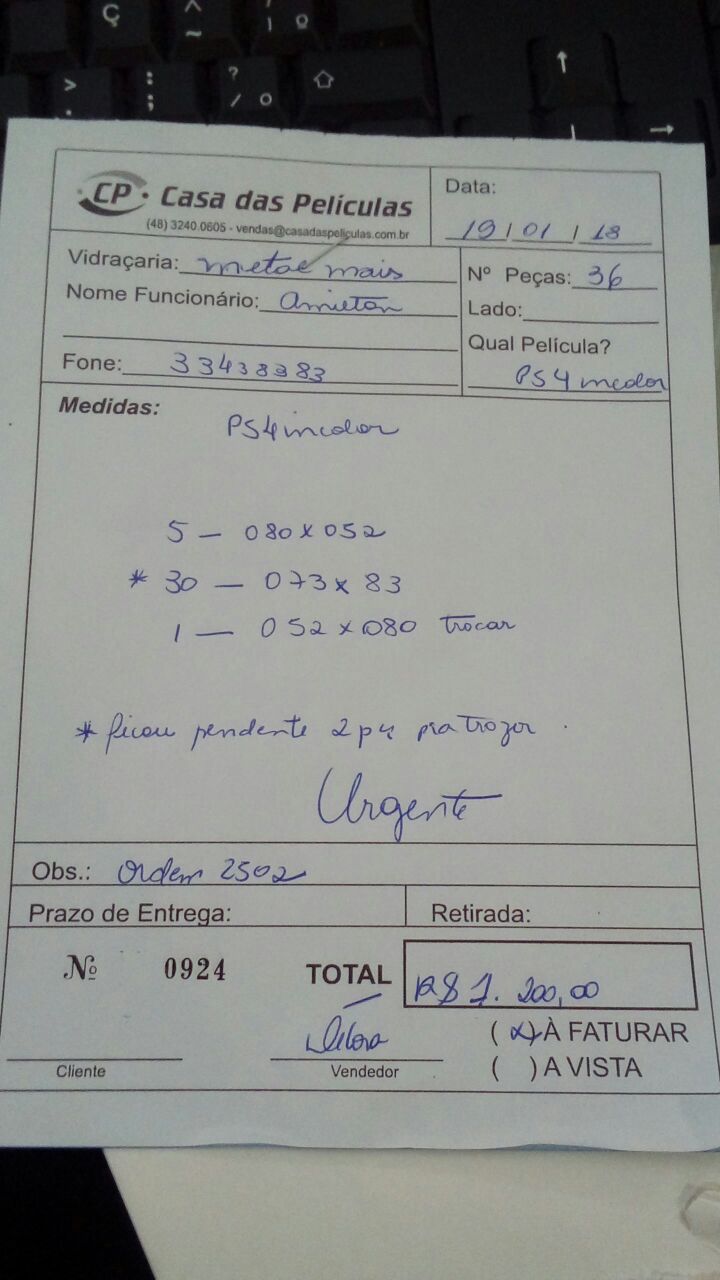 CP Casa das Películas
(48) 3240.0605 - vendas@casadaspeliculas.com.br
Data:
19 / 01 / 18
Vidraçaria: metal mais
Nome Funcionário:
Fone: 33438383
Nº Peças: 36
Lado:
Qual Película?
PS4 incolor
Medidas:
PS4 incolor
5 — 080 x 052
* 30 — 073 x 83
1 — 052 x 080 trocar
* ficou pendente 2 pç pra trazer.
Urgente
Obs.: Ordem 2502
Prazo de Entrega:
Retirada:
Nº 0924
TOTAL R$ 1.200,00
Débora
(x) À FATURAR
( ) A VISTA
Cliente
Vendedor